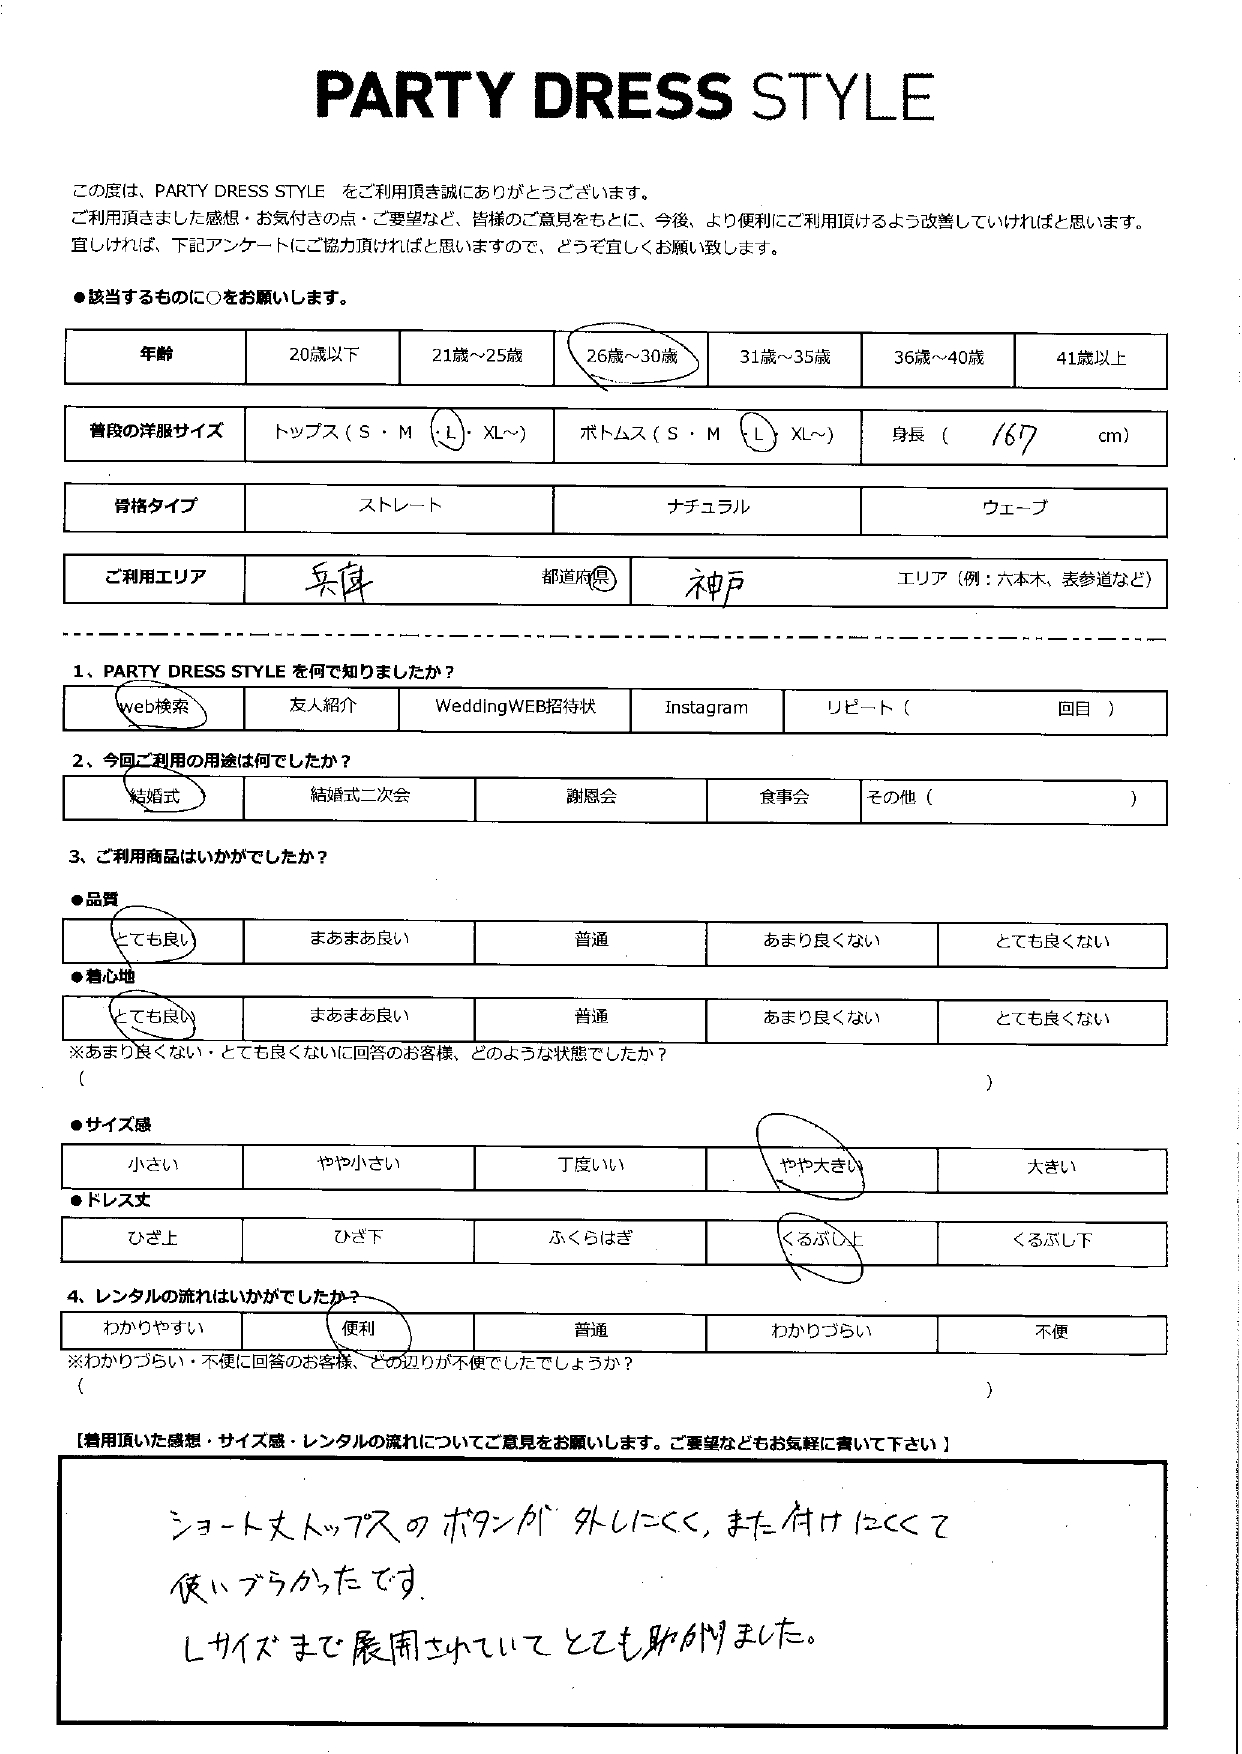 PARTY DRESS STYLE
この度は、PARTY DRESS STYLE をご利用頂き誠にありがとうございます。
ご利用頂きました感想・お気付きの点・ご要望など、皆様のご意見をもとに、今後、より便利にご利用頂けるよう改善していければと思います。
宜しければ、下記アンケートにご協力頂ければと思いますので、どうぞ宜しくお願い致します。
●該当するものに○をお願いします。
年齢 20歳以下 21歳～25歳 26歳～30歳 31歳～35歳 36歳～40歳 41歳以上
普段の洋服サイズ トップス ( S ・ M ・ L ・ XL～) ボトムス ( S ・ M ・ L ・ XL～) 身長 ( 167 cm)
骨格タイプ ストレート ナチュラル ウェーブ
ご利用エリア 兵庫 都道府県 神戸 エリア（例：六本木、表参道など）
1、PARTY DRESS STYLE を何で知りましたか？
web検索 友人紹介 WeddingWEB招待状 Instagram リピート ( 回目 )
2、今回ご利用の用途は何でしたか？
結婚式 結婚式二次会 謝恩会 食事会 その他 ( )
3、ご利用商品はいかがでしたか？
●品質
とても良い まあまあ良い 普通 あまり良くない とても良くない
●着心地
とても良い まあまあ良い 普通 あまり良くない とても良くない
※あまり良くない・とても良くないに回答のお客様、どのような状態でしたか？
( )
●サイズ感
小さい やや小さい 丁度いい やや大きい 大きい
●ドレス丈
ひざ上 ひざ下 ふくらはぎ くるぶし上 くるぶし下
4、レンタルの流れはいかがでしたか？
わかりやすい 便利 普通 わかりづらい 不便
※わかりづらい・不便に回答のお客様、どの辺りが不便でしたでしょうか？
( )
【着用頂いた感想・サイズ感・レンタルの流れについてご意見をお願いします。ご要望などもお気軽に書いて下さい】
ショート丈トップスのボタンが外しにくく,また付けにくくて
使いづらかったです.
Lサイズまで展開されていてとても助かりました。